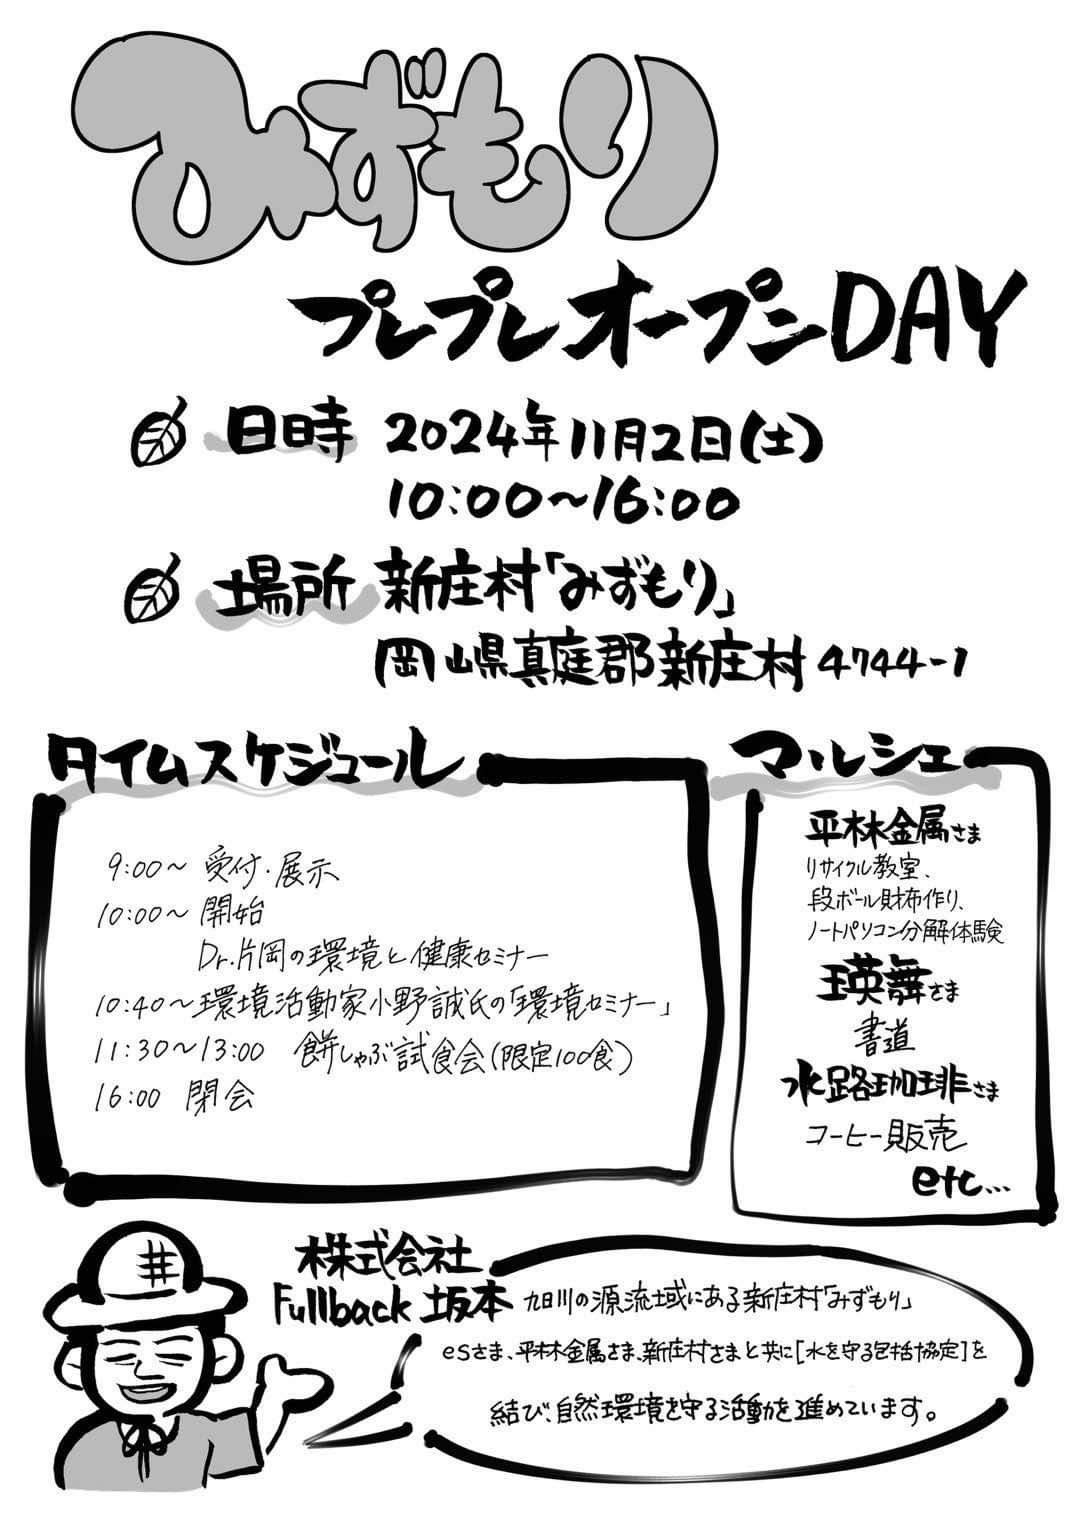 みずもり
プレプレオープンDAY
日時 2024年11月2日(土)
10:00〜16:00
場所 新庄村「みずもり」
岡山県真庭郡新庄村4744-1
タイムスケジュール
9:00〜 受付・展示
10:00〜 開始
Dr.片岡の環境と健康セミナー
10:40〜環境活動家小野誠氏の「環境セミナー」
11:30〜13:00 餅しゃぶ試食会(限定100食)
16:00 閉会
マルシェ
平林金属さま
リサイクル教室、
段ボール財布作り、
ノートパソコン分解体験
瑛舞さま
書道
水路珈琲さま
コーヒー販売
etc...
株式会社
Fullback 坂本
旭川の源流域にある新庄村「みずもり」
esさま、平林金属さま、新庄村さまと共に[水を守る包括協定]を
結び、自然環境を守る活動を進めています。